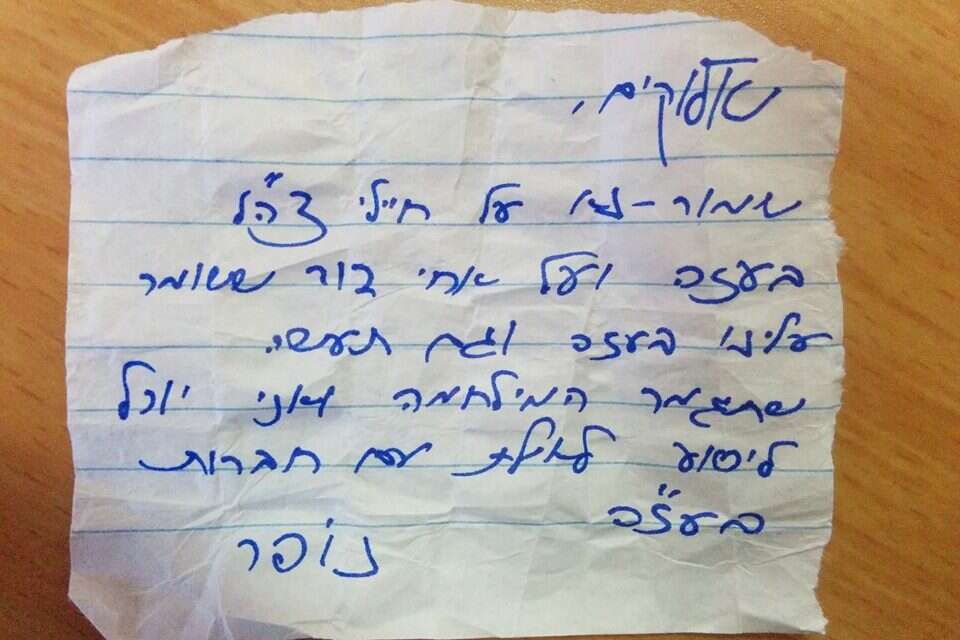 אלוקים,
שמור-נא על חיילי צה"ל
בעזה ועל אחי דור ששומר
עלינו בעזה וגם תעשי.
שתגמר המילחמה ואני יוכל
ליסוע לאילת עם חברות
בעז"ה
נופר